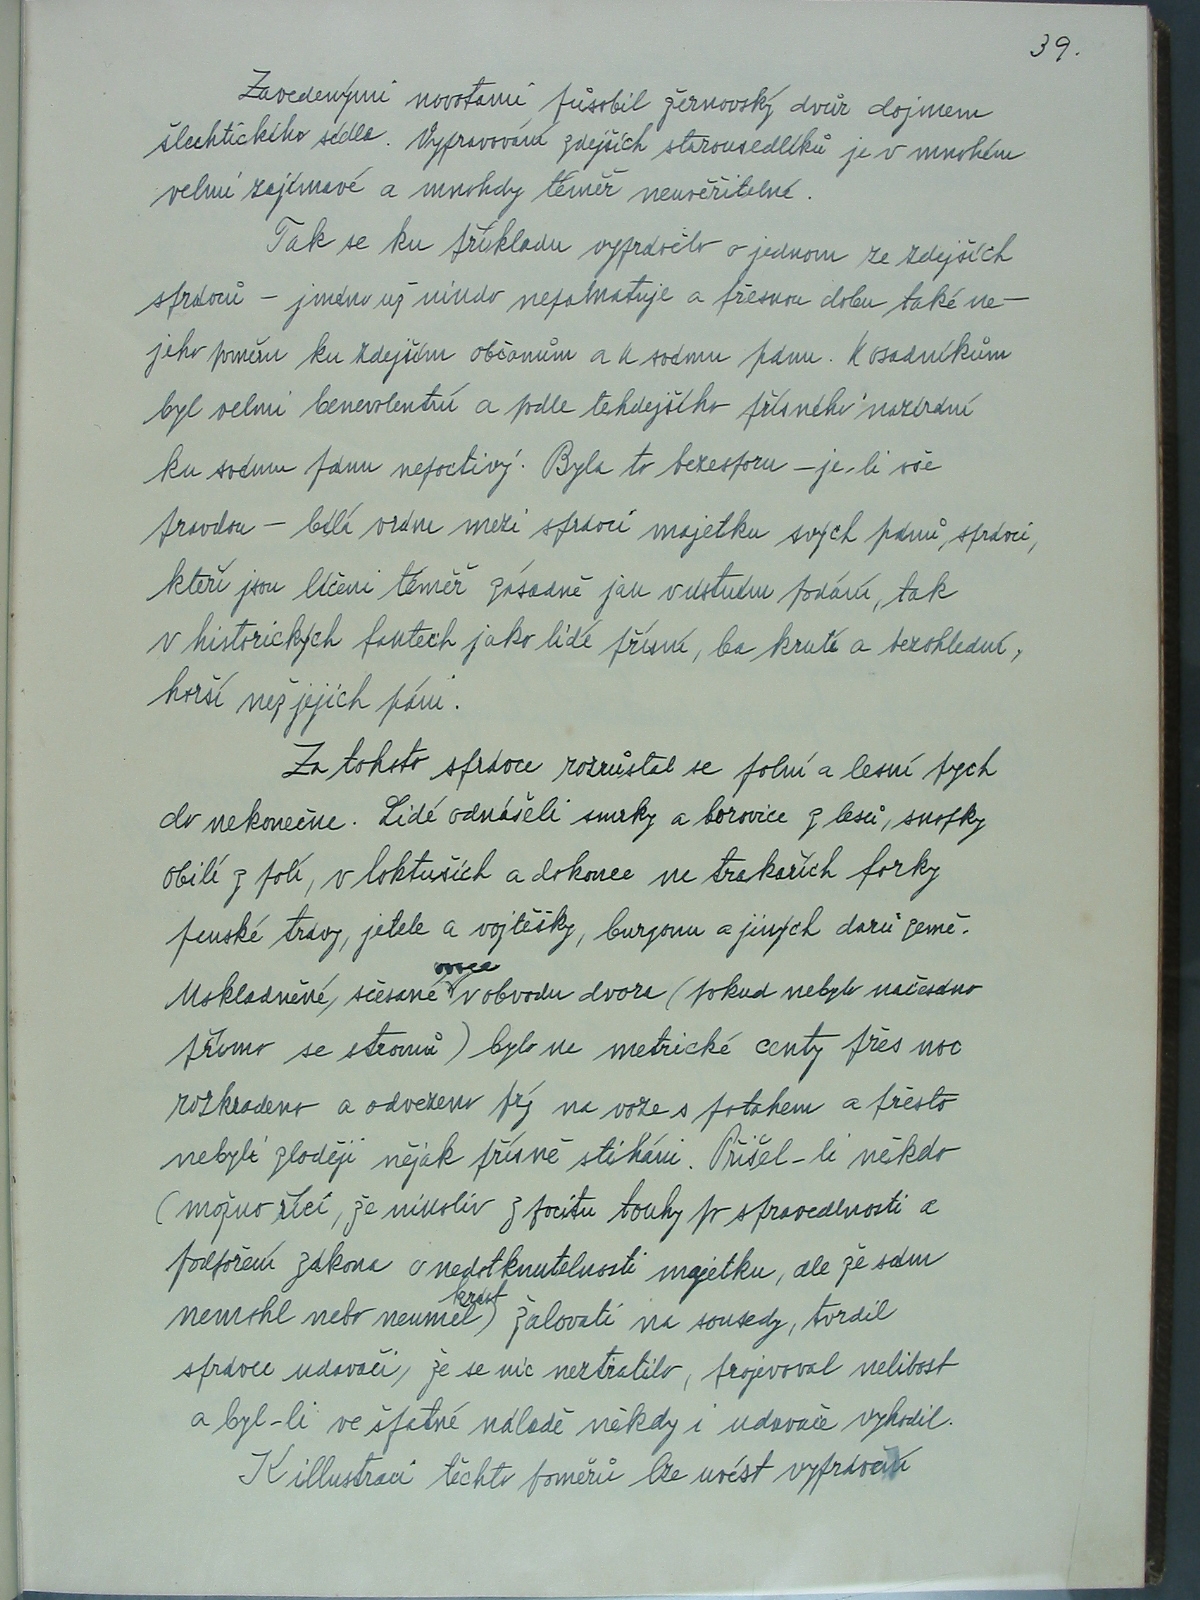 39.
Zavedenými novotami působil žernovský dvůr dojmem
šlechtického sídla. Vypravování zdejších starousedlíků je v mnohém
velmi zajímavé a mnohdy téměř neuvěřitelné.
Tak se ku příkladu vyprávělo o jednom ze zdejších
správců – jméno už nikdo nepamatuje a přesnou dobu také ne –
jeho poměru ku zdejším občanům a k svému pánu. K osadníkům
byl velmi benevolentní a podle tehdejšího přísného nazírání
ku svému pánu nepoctivý. Byla to bezesporu – je-li vše
pravdou – bílá vrána mezi správci majetku svých pánů, správci,
kteří jsou líčeni téměř zásadně jak v ústním podání, tak
v historických faktech jako lidé přísní, ba krutí a bezohlední,
horší než jejich páni.
Za tohoto správce rozrůstal se polní a lesní pych
do nekonečna. Lidé odnášeli smrky a borovice z lesů, snopky
obilí z polí, v loktuších a dokonce na trakařích forky
panské trávy, jetele a vojtěšky, burgonu a jiných darů země.
Uskladněné, sčesané ovoce v obvodu dvora (pokud nebylo načesáno
přímo se stromů) bylo na metrické centy přes noc
rozkradeno a odvezeno prý na voze s potahem a přesto
nebyli zloději nějak přísně stíháni. Přišel-li někdo
(možno říci, že nikoliv z pocitu touhy po spravedlnosti a
podpoření zákona o nedotknutelnosti majetku, ale že sám
nemohl nebo neuměl krást) žalovati na sousedy, tvrdil
správce udavači, že se nic neztratilo, projevoval nelibost
a byl-li ve špatné náladě někdy i udavače vyhodil.
K illustraci těchto poměrů lze uvést vyprávění